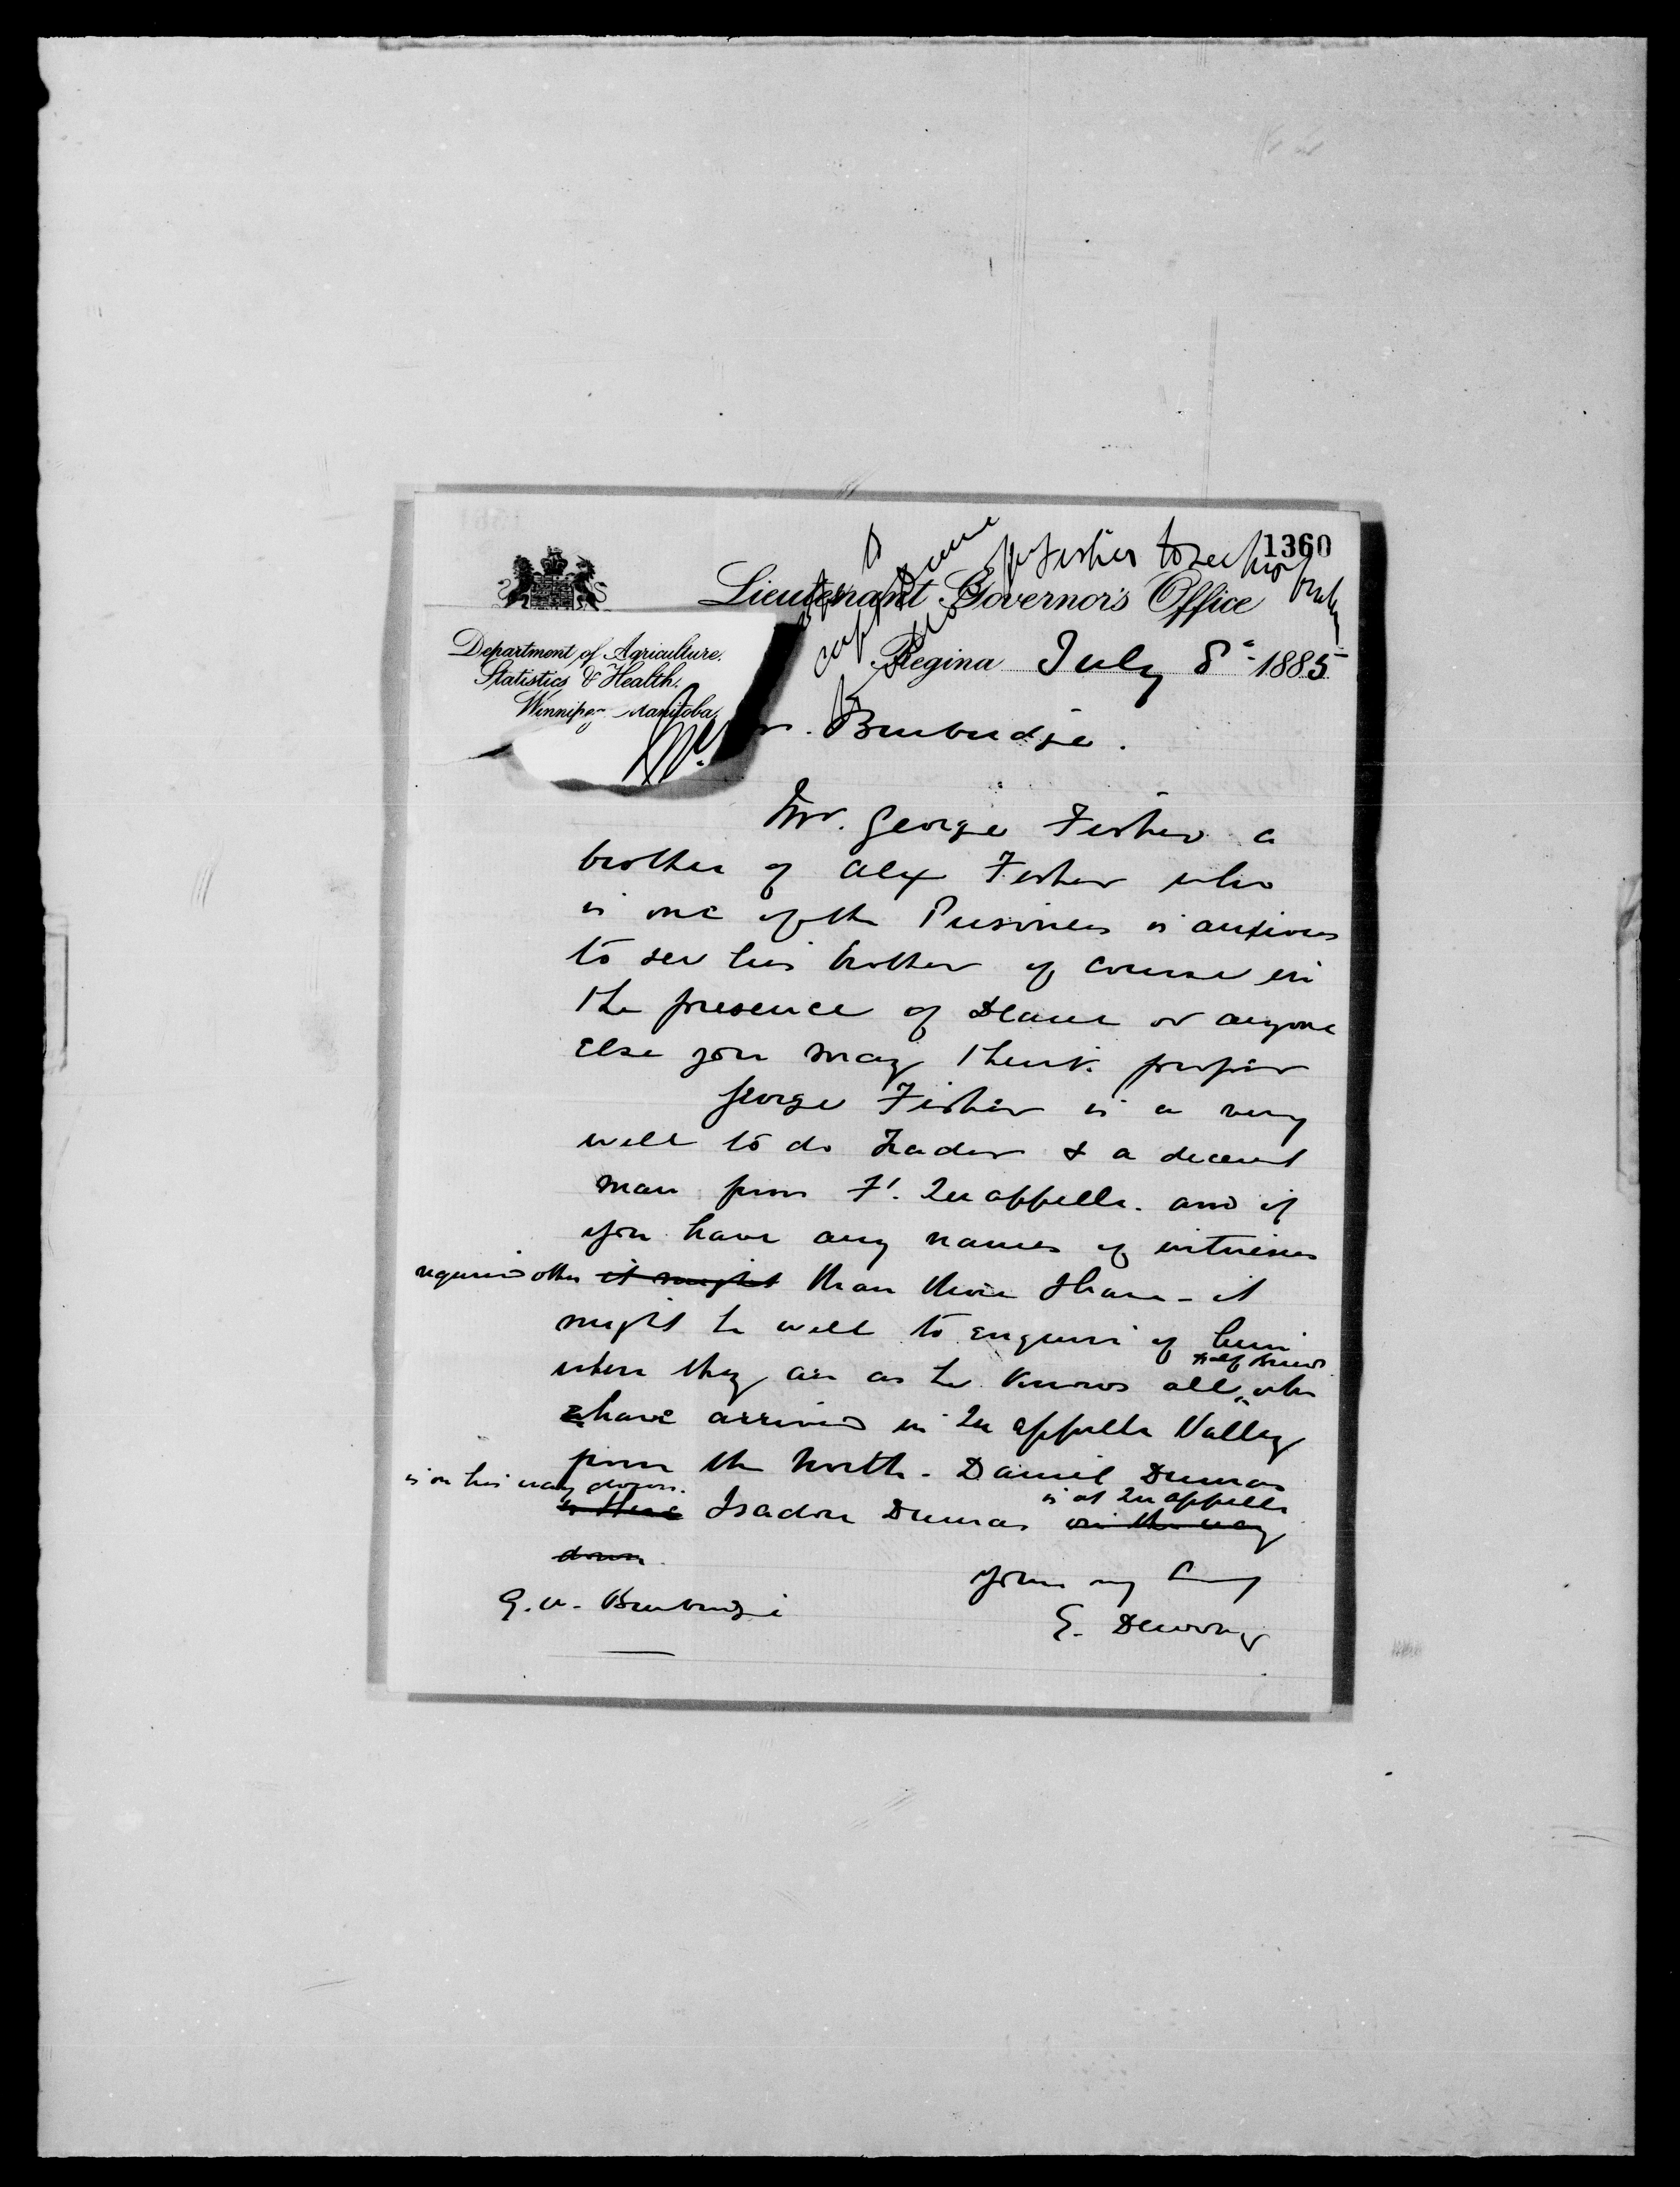 1360
Lieutenant Governor's Office
Department of Agriculture.
Statistics & Health.
Winnipeg Manitoba
Regina July 8th 1885
Burbidge.
Mr. George Fisher a
brother of Alex Fisher who
is one of the Prisoners is anxious
to see his brother of course in
the presence of Deane or anyone
else you may think proper
George Fisher is a very
well to do trader & a decent
man from Ft. Qu'appelle. and if
you have any names of witnesses
required other it might than those I have - it
might be well to enquire of him
Half Breeds
where they are as he knows all who
have arrived in Qu'appelle Valley
from the North. Daniel Dumas
is on his way down.
is at Qu'appelle
is here Isadore Dumas on the way
down
Yours very truly
G. W. Burbidge
E. Dewdney